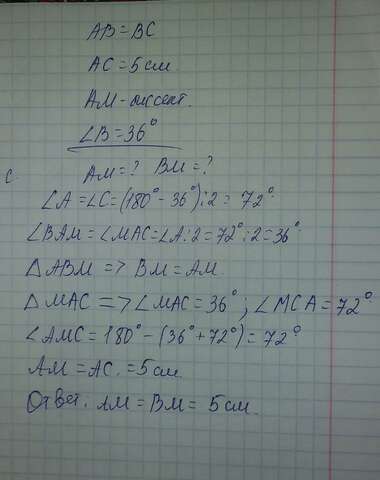 AB = BC
AC = 5 см.
AM - биссект.
∠B = 36°
с. AM = ? BM = ?
∠A = ∠C = (180° - 36°) : 2 = 72°
∠BAM = ∠MAC = ∠A : 2 = 72° : 2 = 36°
△ABM => BM = AM.
△MAC => ∠MAC = 36° ; ∠MCA = 72°
∠AMC = 180° - (36° + 72°) = 72°
AM = AC. = 5 см.
Ответ: AM = BM = 5 см.